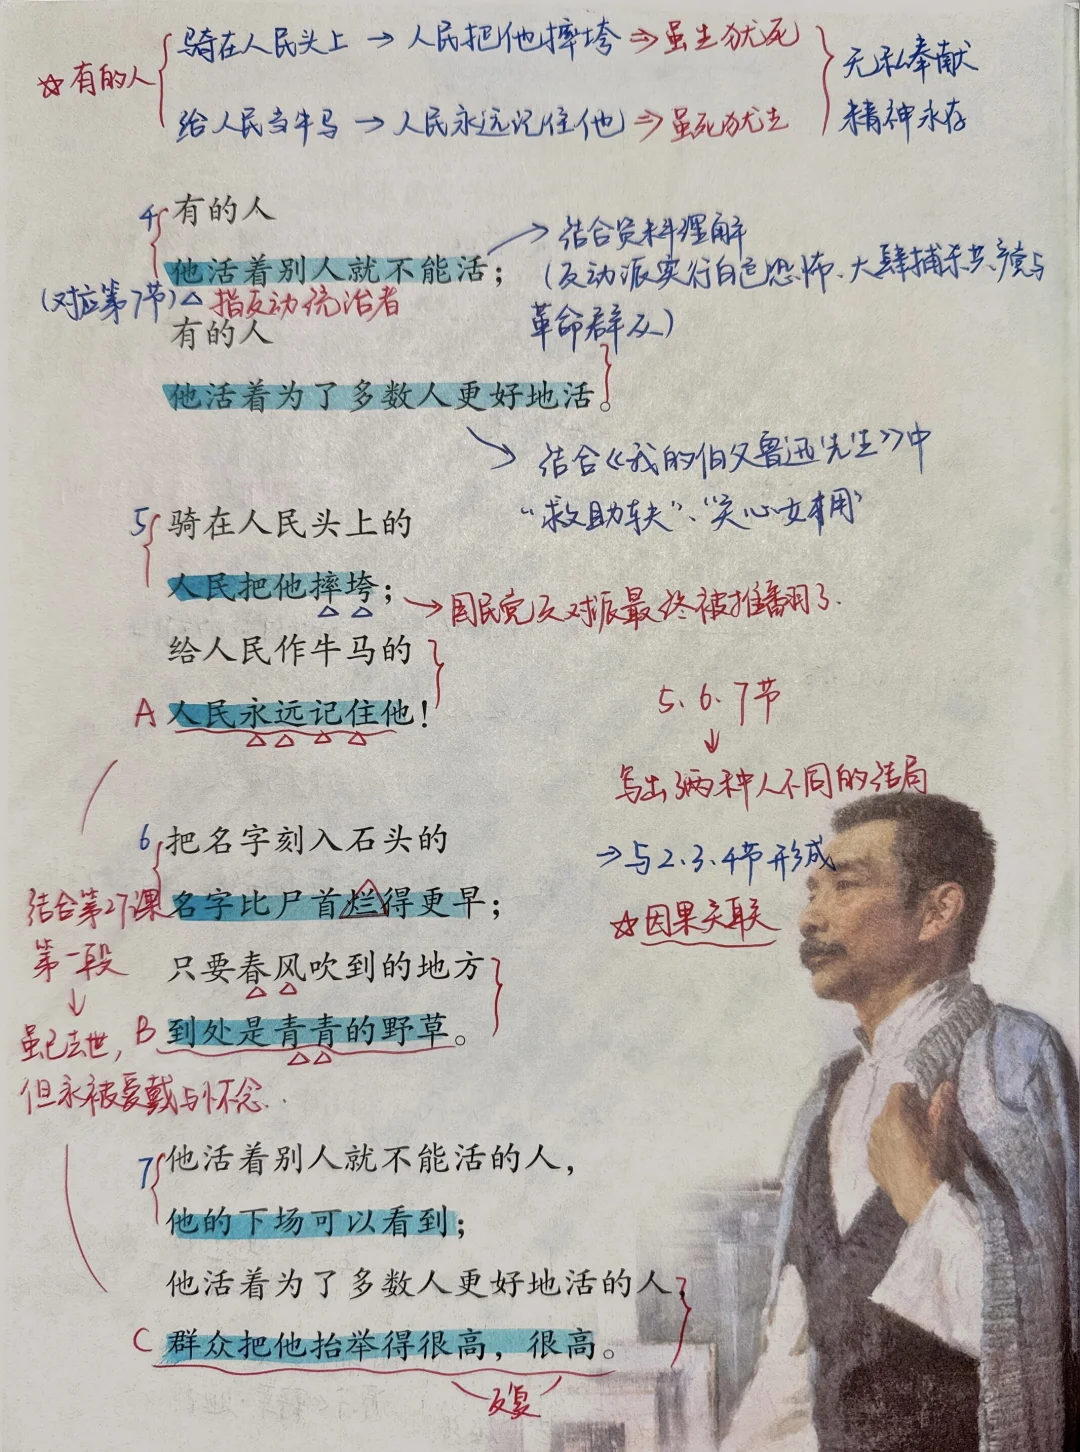 骑在人民头上 → 人民把他摔垮 ⇒ 虽生犹死
☆有的人
无私奉献
给人民当牛马 → 人民永远记住他 ⇒ 虽死犹生
精神永存
4 有的人
→ 结合资料理解
他活着别人就不能活；
(反动派实行白色恐怖、大肆捕杀共产党与
(对应第7节)△ 指反动统治者
革命群众)
有的人
他活着为了多数人更好地活。
→ 结合《我的伯父鲁迅先生》中
“救助车夫”、“关心女佣”
5 骑在人民头上的
人民把他摔垮；
→国民党反对派最终被推翻了.
给人民作牛马的
A 人民永远记住他！
5、6、7节
↓
写出了两种人不同的结局
6 把名字刻入石头的
→与2、3、4节形成
☆因果关联
名字比尸首烂得更早；
结合第27课
第一段
↓
只要春风吹到的地方
B 到处是青青的野草。
虽已去世，
但永被爱戴与怀念..
7 他活着别人就不能活的人，
他的下场可以看到；
他活着为了多数人更好地活的人，
C 群众把他抬举得很高，很高。
反复